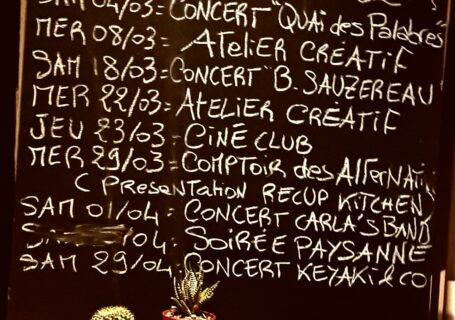 SAM 04/03: CONCERT "QUAI des Palabres"
MER 08/03: ATELIER CRÉATIF
SAM 18/03: CONCERT B. SAUZEREAU
MER 22/03: ATELIER CRÉATIF
JEU 23/03: CINÉ CLUB
MER 29/03: COMPTOIR des AlTerNATi
( PRESENTATION RECUP KITCHEN)
SAM 01/04: CONCERT CARLA'S BAND
/04: SOIRÉE PAYSANNE
SAM 29/04: CONCERT KEYAKI & CO